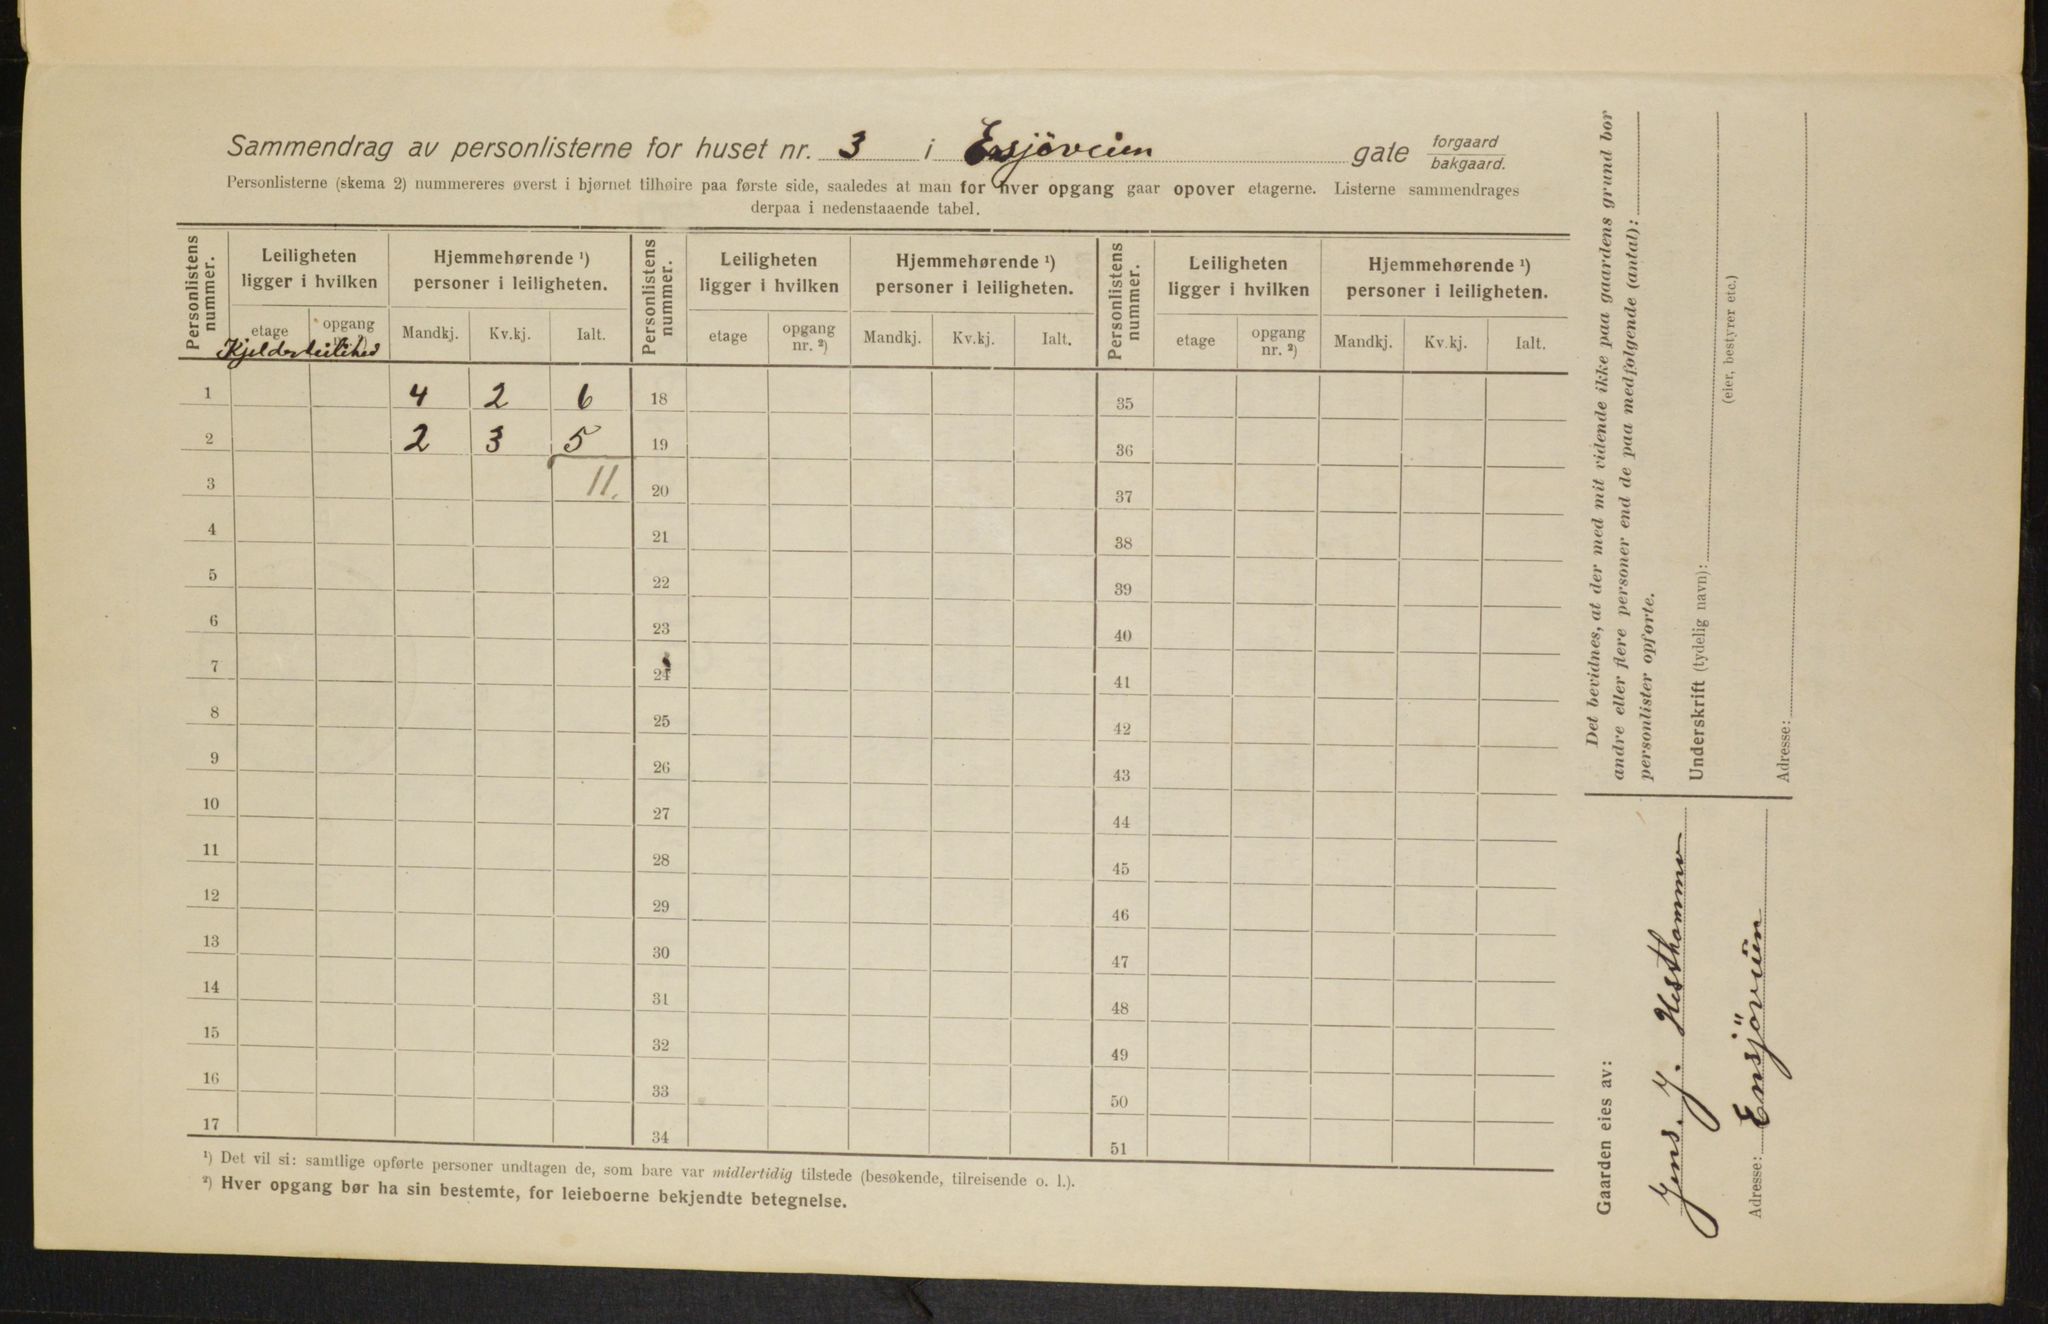 Sammendrag av personlisterne for huset nr. 3 i Ensjöveien gate forgaard bakgaard.
Personlisterne (skema 2) nummereres øverst i bjørnet tilhøire paa første side, saaledes at man for hver opgang gaar opover etagerne. Listerne sammendrages
derpaa i nedenstaaende tabel.
Personlistens nummer. Leiligheten ligger i hvilken Hjemmehørende ¹) personer i leiligheten. Personlistens nummer. Leiligheten ligger i hvilken Hjemmehørende ¹) personer i leiligheten. Personlistens nummer. Leiligheten ligger i hvilken Hjemmehørende ¹) personer i leiligheten.
etage opgang Mandkj. Kv.kj. Ialt. etage opgang nr. ²) Mandkj. Kv.kj. Ialt. etage opgang nr. ²) Mandkj. Kv.kj. Ialt.
1 4 2 6 18 35
2 2 3 5 19 36
3 11. 20 37
4 21 38
5 22 39
6 23 40
7 24 41
8 25 42
9 26 43
10 27 44
11 28 45
12 29 46
13 30 47
14 31 48
15 32 49
16 33 50
17 34 51
¹) Det vil si: samtlige opførte personer undtagen de, som bare var midlertidig tilstede (besøkende, tilreisende o. l.).
²) Hver opgang bør ha sin bestemte, for leieboerne bekjendte betegnelse.
Det bevidnes, at der med mit vidende ikke paa gaardens grund bor
andre eller flere personer end de paa medfølgende (antal):
personlister opførte.
Underskrift (tydelig navn):
(eier, bestyrer etc.)
Adresse:
Gaarden eies av:
Jens. J. Hesthammer
Adresse: Ensjöveien